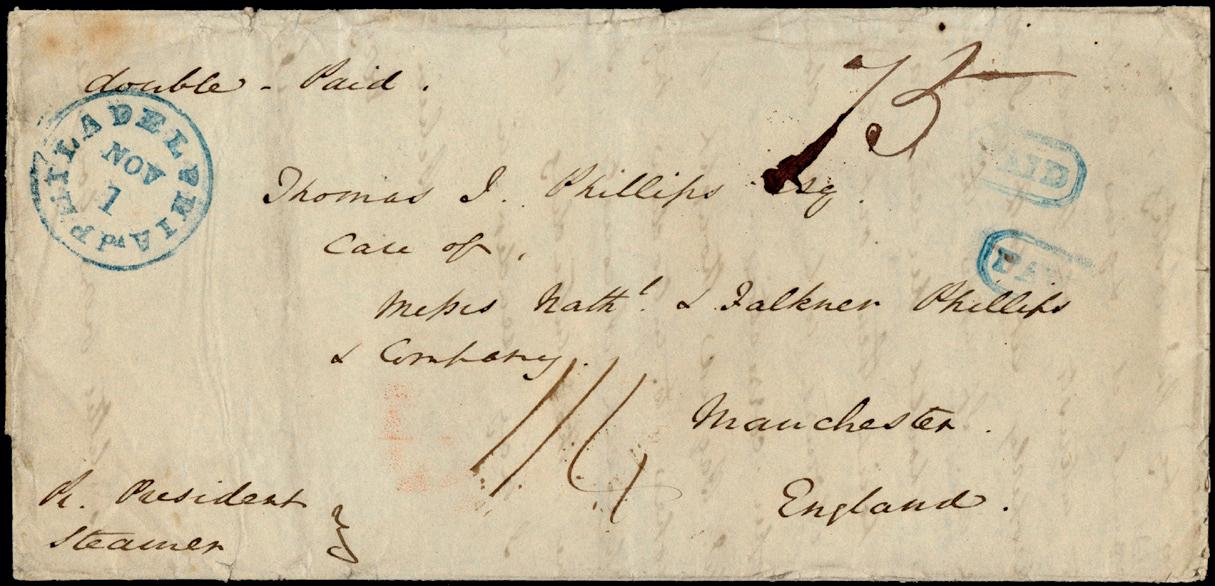 double - Paid.
75
PHILADELPHIA Pa
NOV
1
PAID
Thomas J. Phillips Esq.
Care of,
PAID
Messrs Nathl. & Falkner Phillips
& Company.
Manchester.
Pr. President
England.
Steamer